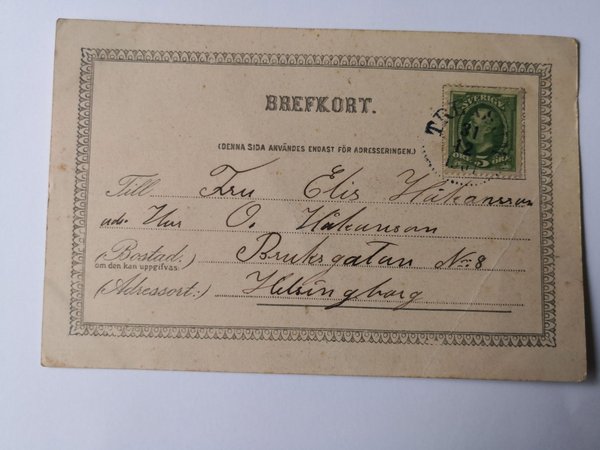 BREFKORT.
SVERIGE
TR
31
12
ÖRE 5 ÖRE
(DENNA SIDA ANVÄNDES ENDAST FÖR ADRESSERINGEN.)
Till Fru Elis Håkanson
adr. Herr O. Håkanson
(Bostad:) Bruksgatan No. 8
om den kan uppgifvas:
(Adressort:) Helsingborg